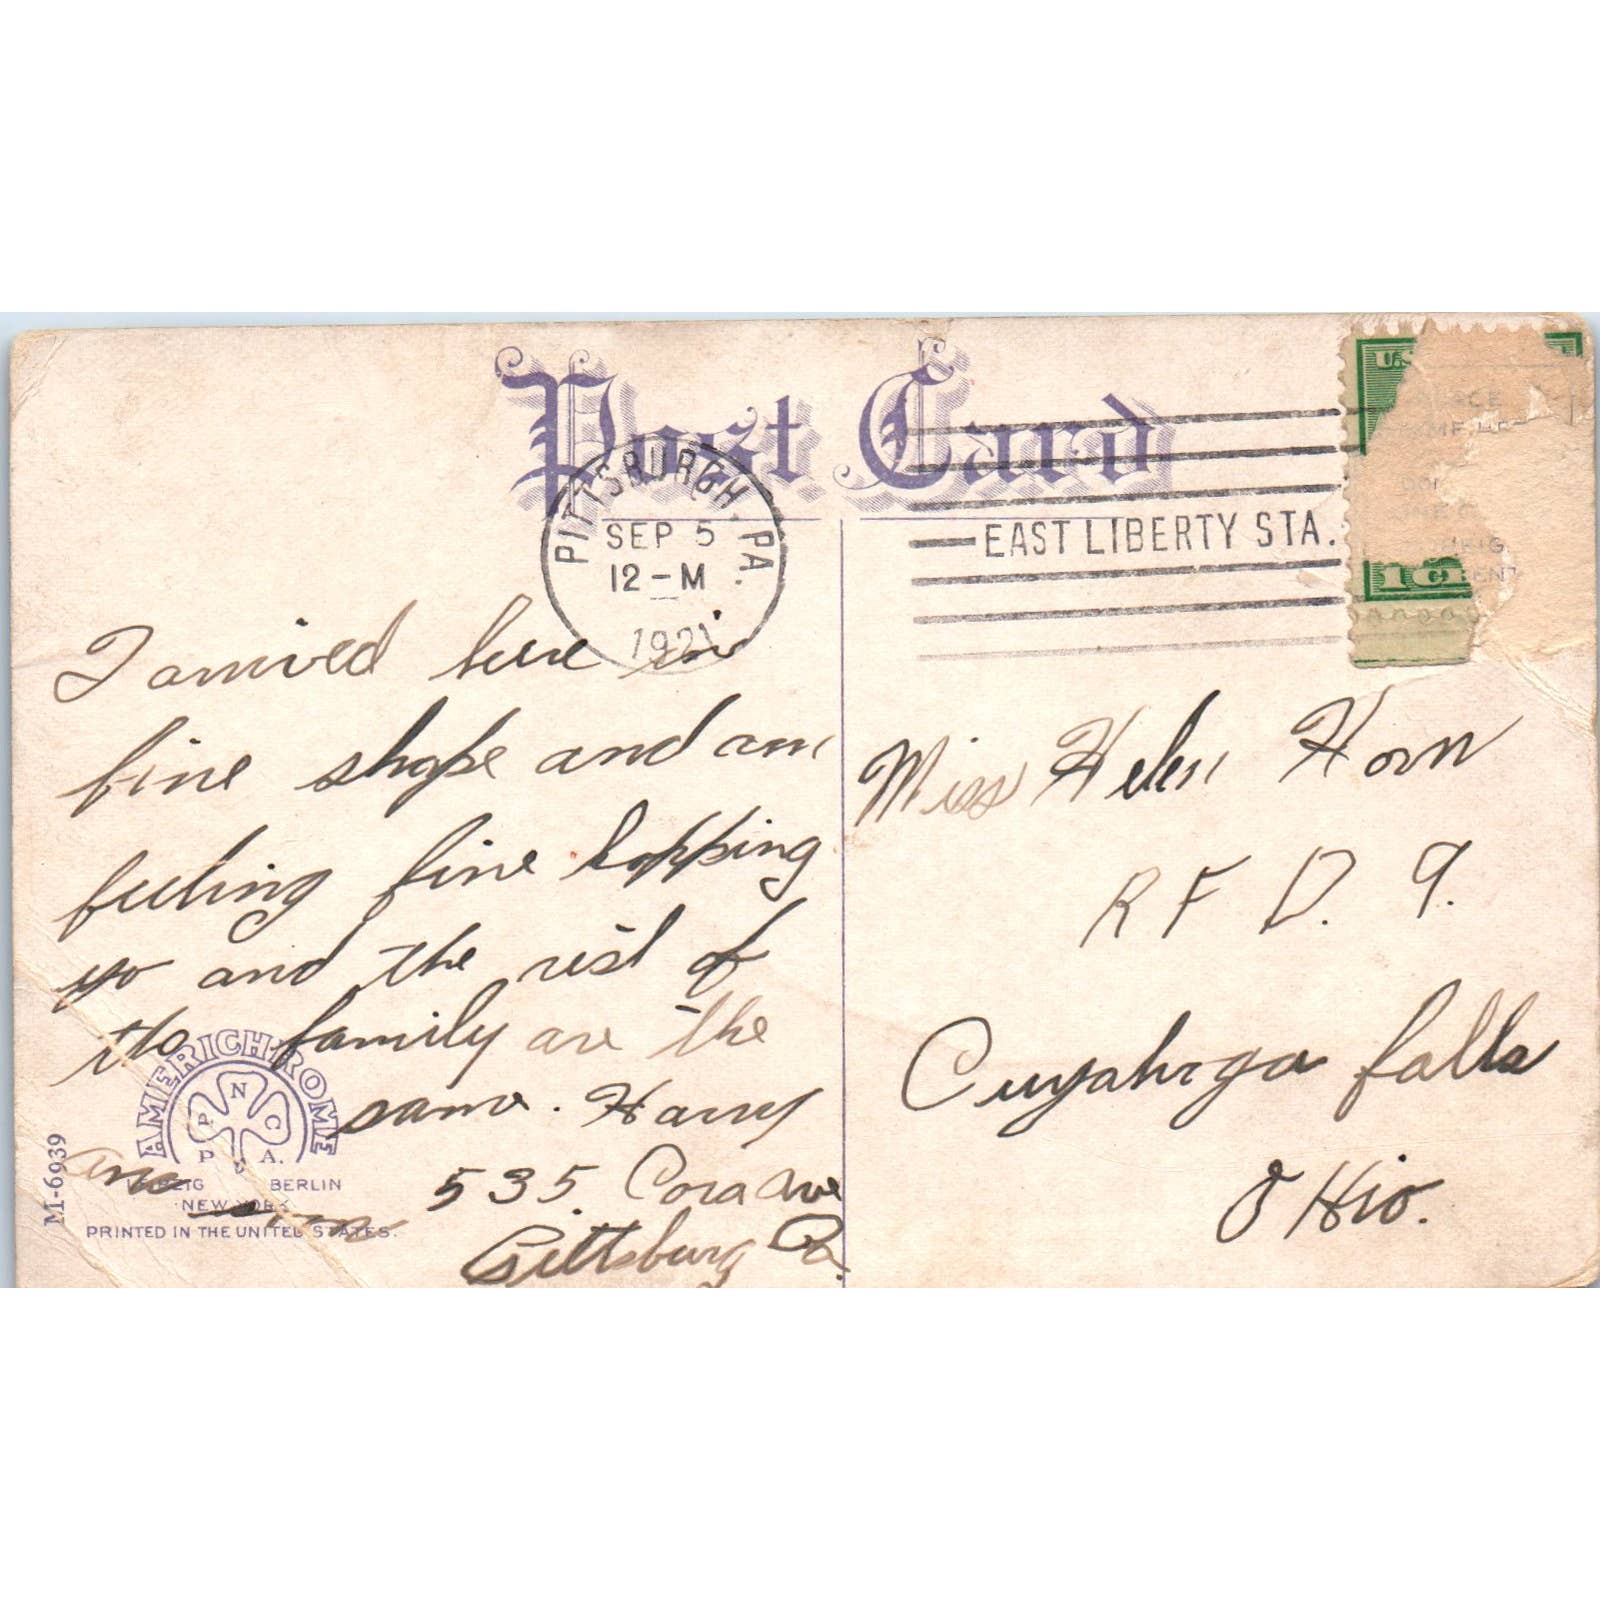 Post Card
PITTSBURGH, PA.
SEP 5
12-M
1921
EAST LIBERTY STA.
U.S.
1 CE
I arrived here in
fine shape and am
feeling fine hopping
yo and the rest of
the family are the
same. Harry
535. Cora Ave
Pittsburg Pa.
AMERICHROME
P N C
P & A.
LEIPZIG BERLIN
NEW YORK
PRINTED IN THE UNITED STATES.
M-6939
Miss Helen Horn
R F D. 9.
Cuyahoga falls
OHio.